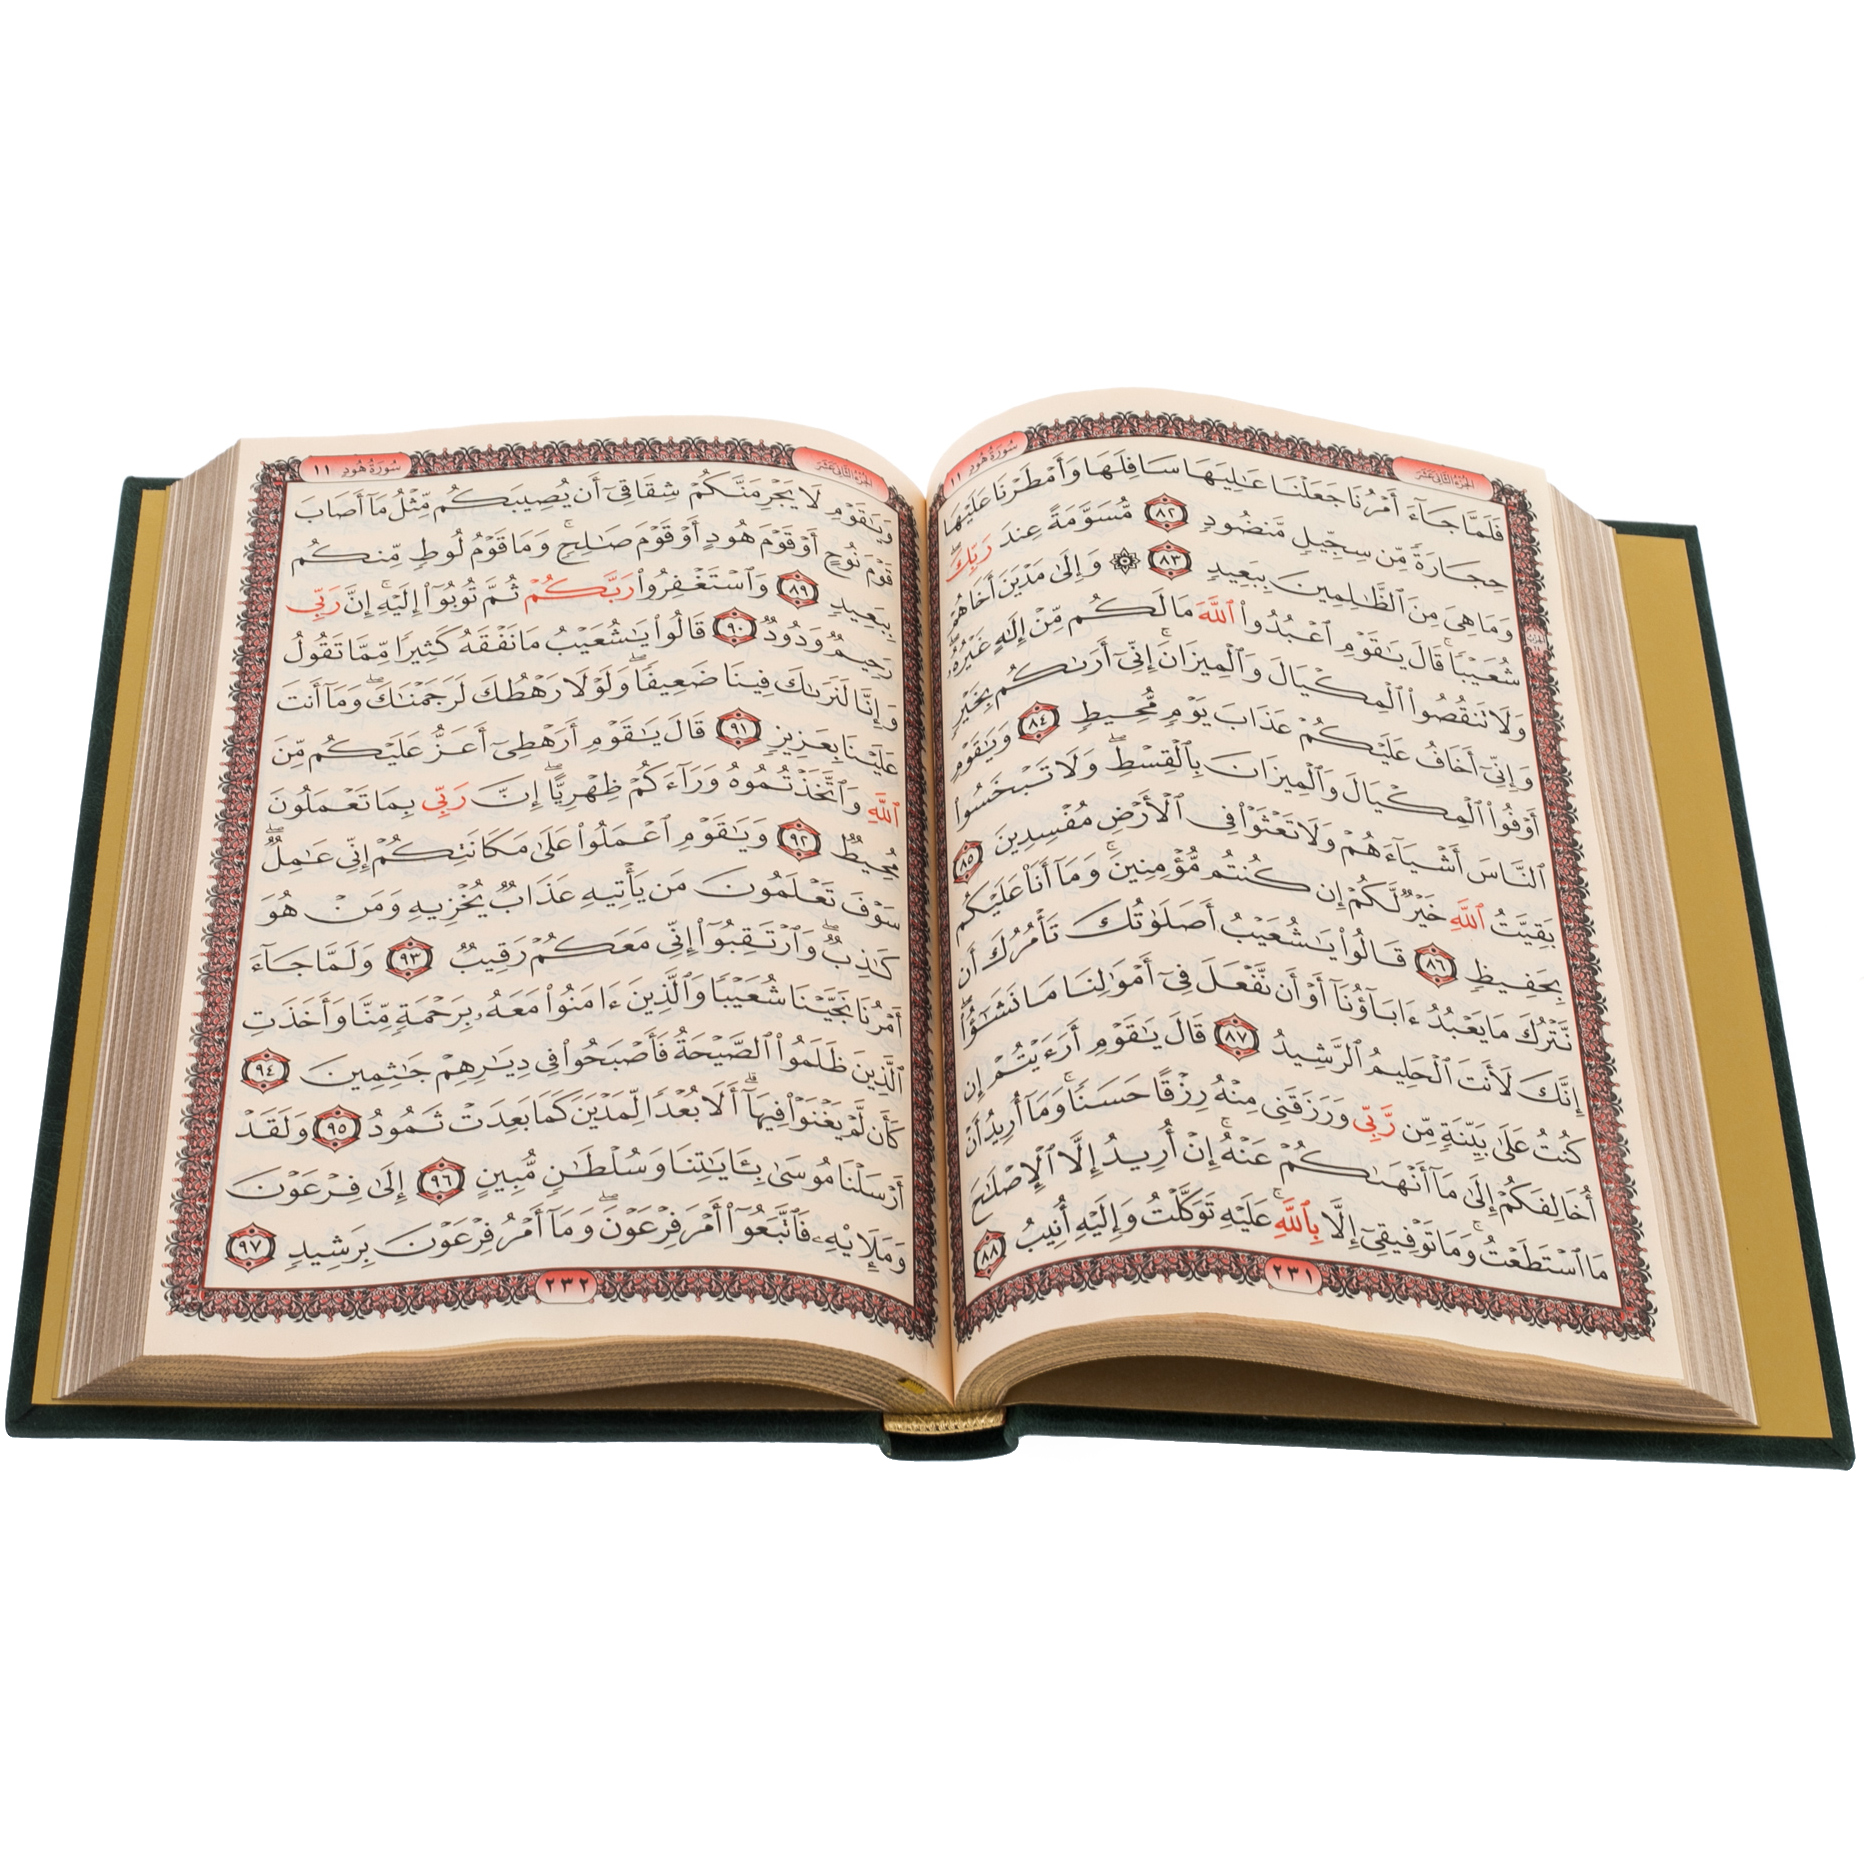 سُورَةُ هُودٍ ١١
الجُزْءُ الثَّانِيَ عَشَرَ
فَلَمَّا جَآءَ أَمْرُنَا جَعَلْنَا عَٰلِيَهَا سَافِلَهَا وَأَمْطَرْنَا عَلَيْهَا
حِجَارَةً مِّن سِجِّيلٍ مَّنضُودٍ ٨٢ مُّسَوَّمَةً عِندَ رَبِّكَۖ
وَمَا هِىَ مِنَ ٱلظَّٰلِمِينَ بِبَعِيدٍ ٨٣ ۞ وَإِلَىٰ مَدْيَنَ أَخَاهُمْ
شُعَيْبًاۚ قَالَ يَٰقَوْمِ ٱعْبُدُوا۟ ٱللَّهَ مَا لَكُم مِّنْ إِلَٰهٍ غَيْرُهُۥۖ
وَلَا تَنقُصُوا۟ ٱلْمِكْيَالَ وَٱلْمِيزَانَۚ إِنِّىٓ أَرَىٰكُم بِخَيْرٍ
وَإِنِّىٓ أَخَافُ عَلَيْكُمْ عَذَابَ يَوْمٍ مُّحِيطٍ ٨٤ وَيَٰقَوْمِ
أَوْفُوا۟ ٱلْمِكْيَالَ وَٱلْمِيزَانَ بِٱلْقِسْطِۖ وَلَا تَبْخَسُوا۟
ٱلنَّاسَ أَشْيَآءَهُمْ وَلَا تَعْثَوْا۟ فِى ٱلْأَرْضِ مُفْسِدِينَ ٨٥
بَقِيَّتُ ٱللَّهِ خَيْرٌ لَّكُمْ إِن كُنتُم مُّؤْمِنِينَۚ وَمَآ أَنَا۠ عَلَيْكُم
بِحَفِيظٍ ٨٦ قَالُوا۟ يَٰشُعَيْبُ أَصَلَوٰتُكَ تَأْمُرُكَ أَن
نَّتْرُكَ مَا يَعْبُدُ ءَابَآؤُنَآ أَوْ أَن نَّفْعَلَ فِىٓ أَمْوَٰلِنَا مَا نَشَٰٓؤُا۟ۖ
إِنَّكَ لَأَنتَ ٱلْحَلِيمُ ٱلرَّشِيدُ ٨٧ قَالَ يَٰقَوْمِ أَرَءَيْتُمْ إِن
كُنتُ عَلَىٰ بَيِّنَةٍ مِّن رَّبِّى وَرَزَقَنِى مِنْهُ رِزْقًا حَسَنًاۚ وَمَآ أُرِيدُ أَنْ
أُخَالِفَكُمْ إِلَىٰ مَآ أَنْهَىٰكُمْ عَنْهُۚ إِنْ أُرِيدُ إِلَّا ٱلْإِصْلَٰحَ
مَا ٱسْتَطَعْتُۚ وَمَا تَوْفِيقِىٓ إِلَّا بِٱللَّهِۚ عَلَيْهِ تَوَكَّلْتُ وَإِلَيْهِ أُنِيبُ ٨٨
٢٣١
سُورَةُ هُودٍ ١١
الجُزْءُ الثَّانِيَ عَشَرَ
وَيَٰقَوْمِ لَا يَجْرِمَنَّكُمْ شِقَاقِىٓ أَن يُصِيبَكُم مِّثْلُ مَآ أَصَابَ
قَوْمَ نُوحٍ أَوْ قَوْمَ هُودٍ أَوْ قَوْمَ صَٰلِحٍۚ وَمَا قَوْمُ لُوطٍ مِّنكُم
بِبَعِيدٍ ٨٩ وَٱسْتَغْفِرُوا۟ رَبَّكُمْ ثُمَّ تُوبُوٓا۟ إِلَيْهِۚ إِنَّ رَبِّى
رَحِيمٌ وَدُودٌ ٩٠ قَالُوا۟ يَٰشُعَيْبُ مَا نَفْقَهُ كَثِيرًا مِّمَّا تَقُولُ
وَإِنَّا لَنَرَىٰكَ فِينَا ضَعِيفًاۖ وَلَوْلَا رَهْطُكَ لَرَجَمْنَٰكَۖ وَمَآ أَنتَ
عَلَيْنَا بِعَزِيزٍ ٩١ قَالَ يَٰقَوْمِ أَرَهْطِىٓ أَعَزُّ عَلَيْكُم مِّنَ
ٱللَّهِ وَٱتَّخَذْتُمُوهُ وَرَآءَكُمْ ظِهْرِيًّاۖ إِنَّ رَبِّى بِمَا تَعْمَلُونَ
مُحِيطٌ ٩٢ وَيَٰقَوْمِ ٱعْمَلُوا۟ عَلَىٰ مَكَانَتِكُمْ إِنِّى عَٰمِلٌۖ
سَوْفَ تَعْلَمُونَ مَن يَأْتِيهِ عَذَابٌ يُخْزِيهِ وَمَنْ هُوَ
كَٰذِبٌۖ وَٱرْتَقِبُوٓا۟ إِنِّى مَعَكُمْ رَقِيبٌ ٩٣ وَلَمَّا جَآءَ
أَمْرُنَا نَجَّيْنَا شُعَيْبًا وَٱلَّذِينَ ءَامَنُوا۟ مَعَهُۥ بِرَحْمَةٍ مِّنَّا وَأَخَذَتِ
ٱلَّذِينَ ظَلَمُوا۟ ٱلصَّيْحَةُ فَأَصْبَحُوا۟ فِى دِيَٰرِهِمْ جَٰثِمِينَ ٩٤
كَأَن لَّمْ يَغْنَوْا۟ فِيهَآۗ أَلَا بُعْدًا لِّمَدْيَنَ كَمَا بَعِدَتْ ثَمُودُ ٩٥ وَلَقَدْ
أَرْسَلْنَا مُوسَىٰ بِـَٔايَٰتِنَا وَسُلْطَٰنٍ مُّبِينٍ ٩٦ إِلَىٰ فِرْعَوْنَ
وَمَلَإِي۟هِۦ فَٱتَّبَعُوٓا۟ أَمْرَ فِرْعَوْنَۖ وَمَآ أَمْرُ فِرْعَوْنَ بِرَشِيدٍ ٩٧
٢٣٢